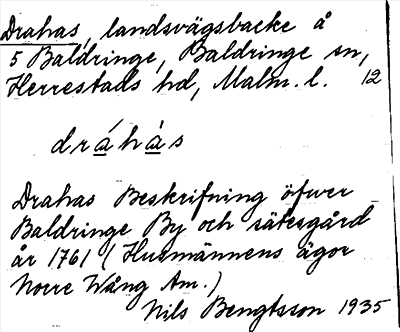 Drahas, landsvägsbacke å
5 Baldringe, Baldringe sn,
Herrestads hd, Malm. l. 12
dráhàs
Drahas Beskrifning öfwer
Baldringe By och sätesgård
år 1761 (Husmännens ägor
Norre Wång Am.)
Nils Bengtsson 1935